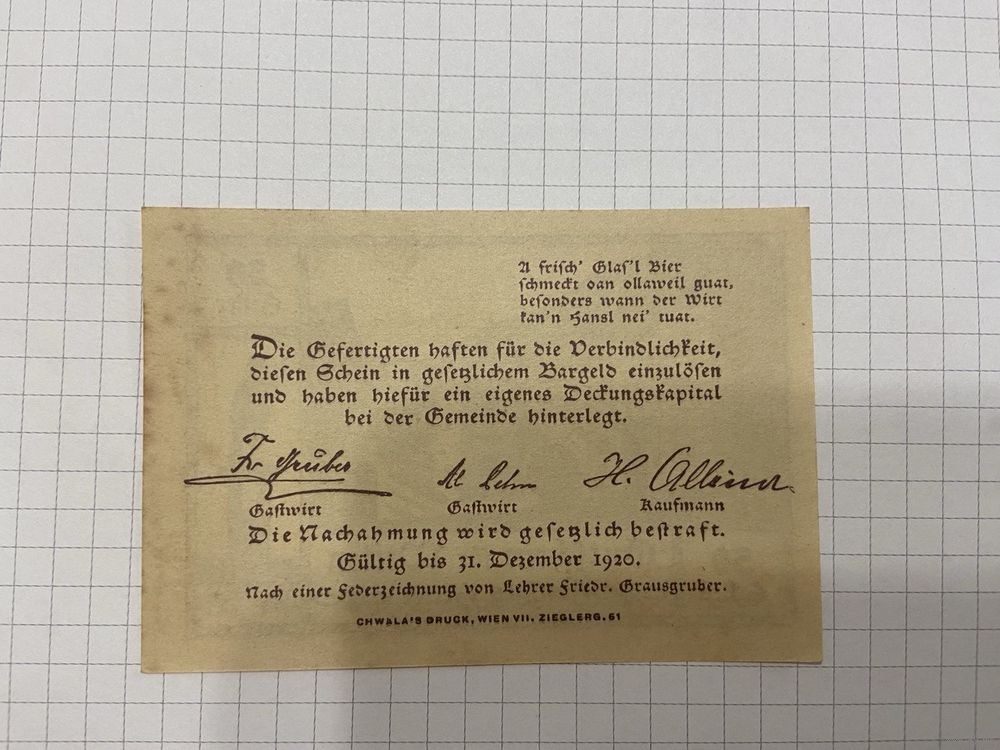 A frisch' Glas'l Bier
schmeckt oan ollaweil guat,
besonders wann der Wirt
kan'n Hansl nei' tuat.
Die Gefertigten haften für die Verbindlichkeit,
diesen Schein in gesetzlichem Bargeld einzulösen
und haben hiefür ein eigenes Deckungskapital
bei der Gemeinde hinterlegt.
Fr. Gruber
H.
Gastwirt Gastwirt Kaufmann
Die Nachahmung wird gesetzlich bestraft.
Gültig bis 31. Dezember 1920.
Nach einer Federzeichnung von Lehrer Friedr. Grausgruber.
CHWALA'S DRUCK, WIEN VII. ZIEGLERG. 61